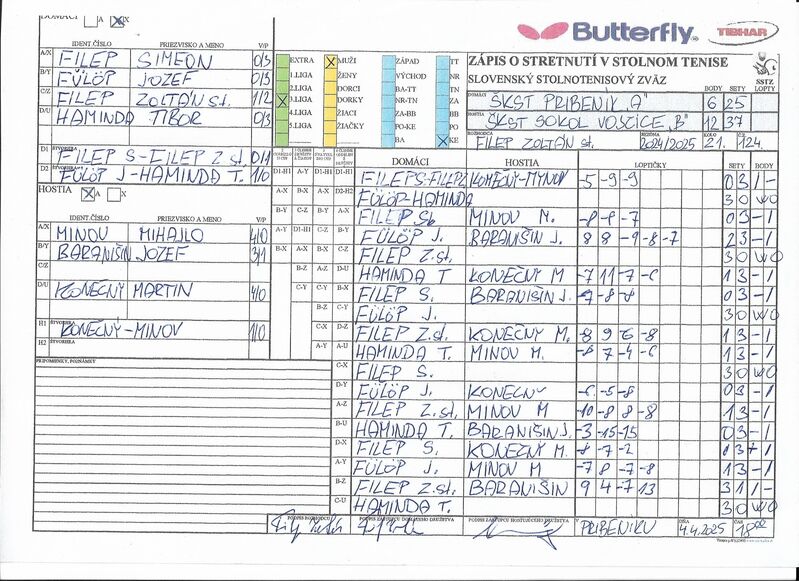 DOMÁCI A X
Butterfly TIBHAR
ZÁPIS O STRETNUTÍ V STOLNOM TENISE
SLOVENSKÝ STOLNOTENISOVÝ ZVÄZ
SSTZ
IDENT. ČÍSLO PRIEZVISKO A MENO V/P
A/X FILEP SIMEON 0/3
B/Y FÜLÖP JOZEF 0/3
C/Z FILEP ZOLTÁN st. 1/2
D/U HAMINDA TIBOR 0/3
D1 ŠTVORHRA FILEP S-FILEP Z st. 0/1
D2 ŠTVORHRA FÜLÖP J-HAMINDA T. 1/0
HOSTIA X A X
IDENT. ČÍSLO PRIEZVISKO A MENO V/P
A/X MINOV MIHAJLO 4/0
B/Y BARANIŠIN JOZEF 3/1
C/Z
D/U KONEČNÝ MARTIN 4/0
H1 ŠTVORHRA KONEČNÝ-MINOV 1/0
H2 ŠTVORHRA
PRIPOMIENKY, POZNÁMKY
EXTRA X MUŽI ZÁPAD TT
1.LIGA ŽENY VÝCHOD NR
2.LIGA DORCI BA-TT TN
X 3.LIGA DORKY NR-TN ZA
4.LIGA ŽIACI ZA-BB BB
5.LIGA ŽIAČKY PO-KE PO
BA X KE
BODY SETY LOPTY
DOMÁCI ŠKST PRIBENÍK "A" 6 25
HOSTIA ŠKST SOKOL VOJČICE "B" 12 37
ROZHODCA FILEP ZOLTÁN st. SEZÓNA 2024/2025 KOLO 21. Č. 124.
DOMÁCI HOSTIA LOPTIČKY SETY BODY
D1-H1 A-Y D1-H1 D1-H1 FILEP S-FILEP Z KONEČNÝ-MINOV -5 -9 -9 0 3 / -
A-X B-X A-X D2-H2 FÜLÖP-HAMINDA 3 0 WO
B-Y C-Z B-Y A-X FILEP S. MINOV M. -8 -8 -7 0 3 - 1
A-Y D1-H1 C-Z B-Y FÜLÖP J. BARANIŠIN J. 8 8 -9 -8 -7 2 3 - 1
B-X A-X B-X C-Z FILEP Z.st. 3 0 WO
B-Z A-Z D-U HAMINDA T KONEČNÝ M -7 11 -7 -6 1 3 - 1
C-Y B-Y A-X FILEP S. BARANIŠIN J. -7 -8 -8 0 3 - 1
B-Z C-Y FÜLÖP J. 3 0 WO
C-X D-Z FILEP Z.st. KONEČNÝ M. -8 9 -6 -8 1 3 - 1
A-Y U-A HAMINDA T. MINOV M. -8 7 -4 -6 1 3 - 1
C-X FILEP S. 3 0 WO
D-Y FÜLÖP J. KONEČNÝ -6 -5 -8 0 3 - 1
A-Z FILEP Z.st. MINOV M -10 -8 8 -8 1 3 - 1
B-U HAMINDA T. BARANIŠIN J. -3 -15 -15 0 3 - 1
D-X FILEP S. KONEČNÝ M. -8 -7 -2 0 3 - 1
A-Y FÜLÖP J. MINOV M -7 8 -7 -8 1 3 - 1
B-Z FILEP Z.st. BARANIŠIN 9 4 -7 13 3 1 1 -
C-U HAMINDA T. 3 0 WO
PODPIS ROZHODCU PODPIS ZÁSTUPCU DOMÁCEHO DRUŽSTVA PODPIS ZÁSTUPCU HOSŤUJÚCEHO DRUŽSTVA V PRIBENÍKU DŇA 4.4.2025 ČAS 18 00